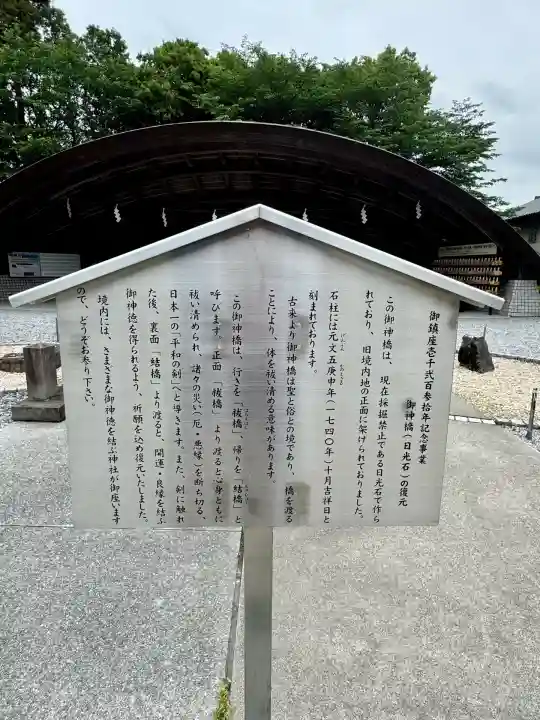 御鎮座壱千弐百参拾年記念事業
御神橋（日光石）の復元
この御神橋は、現在採掘禁止である日光石で作ら
れており、旧境内地の正面に架けられておりました。
石柱には元文五庚申年（一七四〇年）十月吉祥日と
刻まれております。
古来より御神橋は聖と俗との境であり、橋を渡る
ことにより、体を祓い清める意味があります。
この御神橋は、行きを「祓橋」、帰りを「結橋」と
呼びます。正面「祓橋」より渡ると心身ともに
祓い清められ、諸々の災い（厄・悪縁）を断ち切る、
日本一の「平和の剣」へと導きます。また、剣に触れ
た後、裏面「結橋」より渡ると、開運・良縁を結ぶ
御神徳を得られるよう、祈願を込め復元いたしました。
境内には、さまざまな御神徳を結ぶ神社が御座います
ので、どうぞお参り下さい。